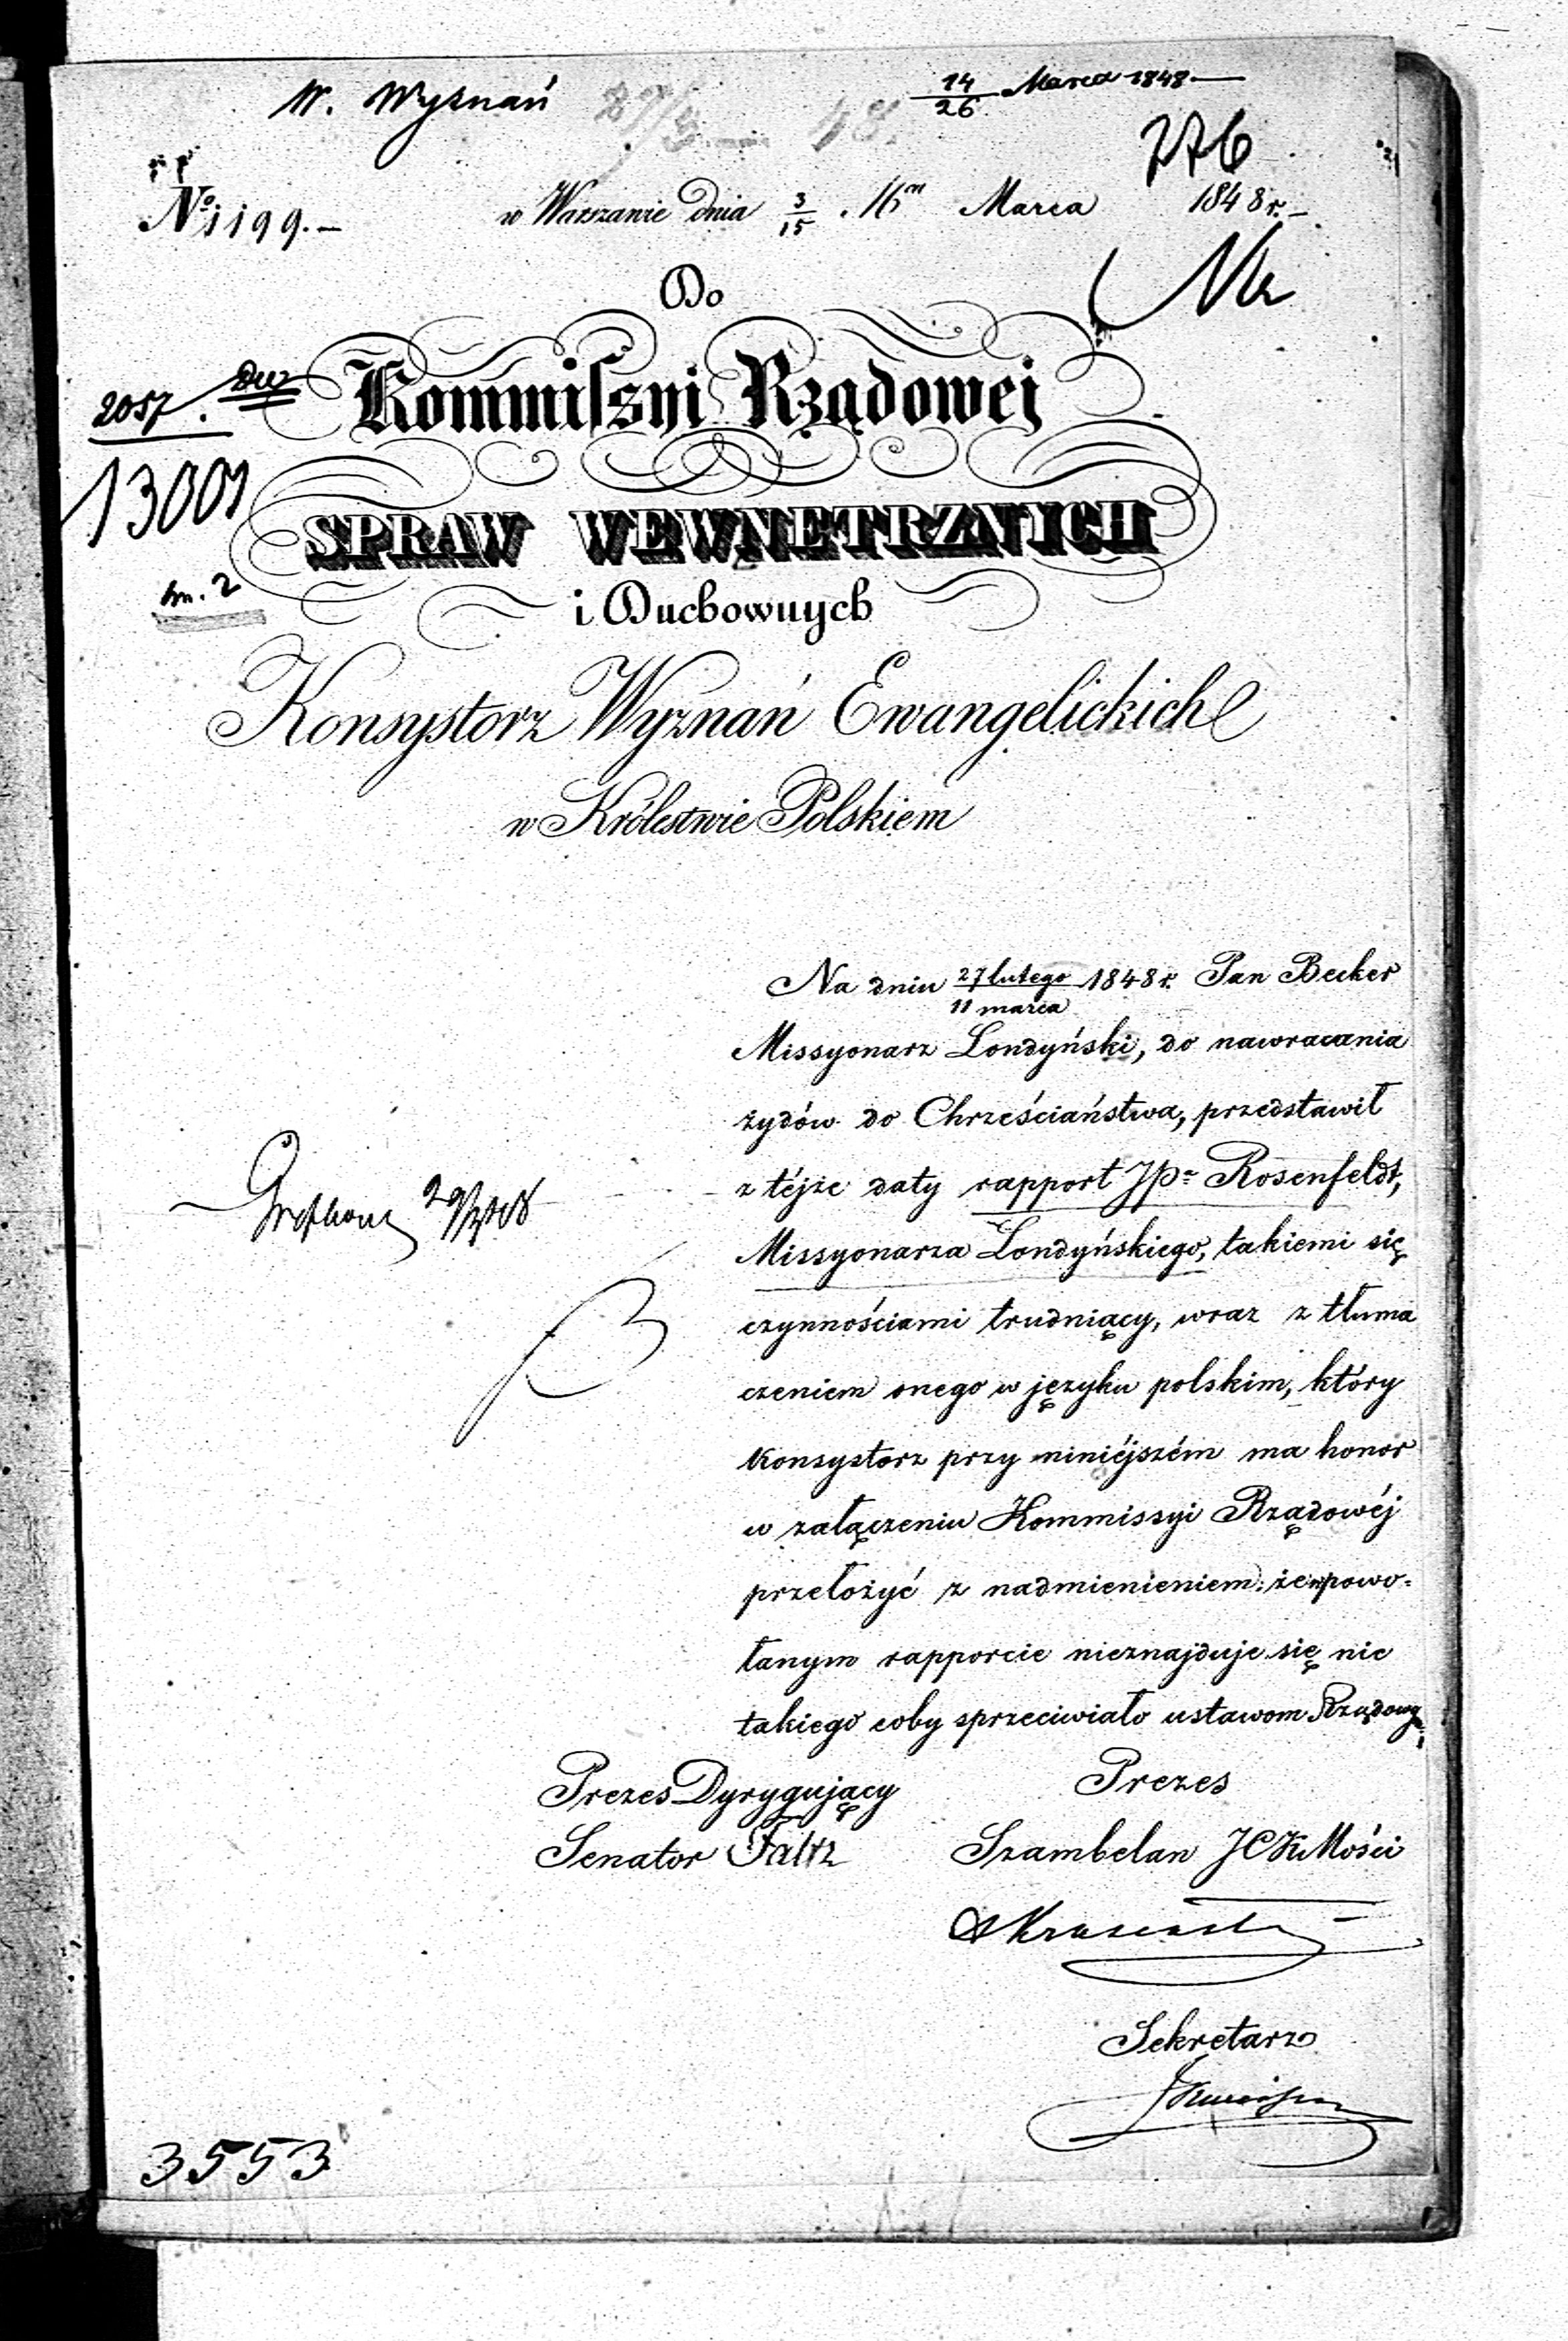 W. Wyznań
14/26 Marca 1848
276
No 1199.
w Warszawie dnia 3/15 Mca Marca 1848 r.
Do
Kommissyi Rządowej
2057. Duz
13001
SPRAW WEWNETRZNYCH
i Duchownych
Konsystorz Wyznań Ewangelickich
w Królestwie Polskiem
Na dniu 27 lutego/11 marca 1848 r. Pan Becker
Missyonarz Londyński, do nawracania
żydów do Chrześciaństwa, przedstawił
z téjże daty rapport JPa Rosenfeldt,
Missyonarza Londyńskiego, takiemi się
czynnościami trudniący, wraz z tłuma
czeniem onego w języku polskim, który
Konsystorz przy niniéjszém ma honor
w załączeniu Kommissyi Rządowéj
przełożyć z nadmienieniem: że w powo=
łanym rapporcie nieznajduje się nic
takiego coby sprzeciwiało ustawom Rządowym
Prezes Dyrygujący
Senator Faltz
Prezes
Szambelan JCKMości
Sekretarz
3553